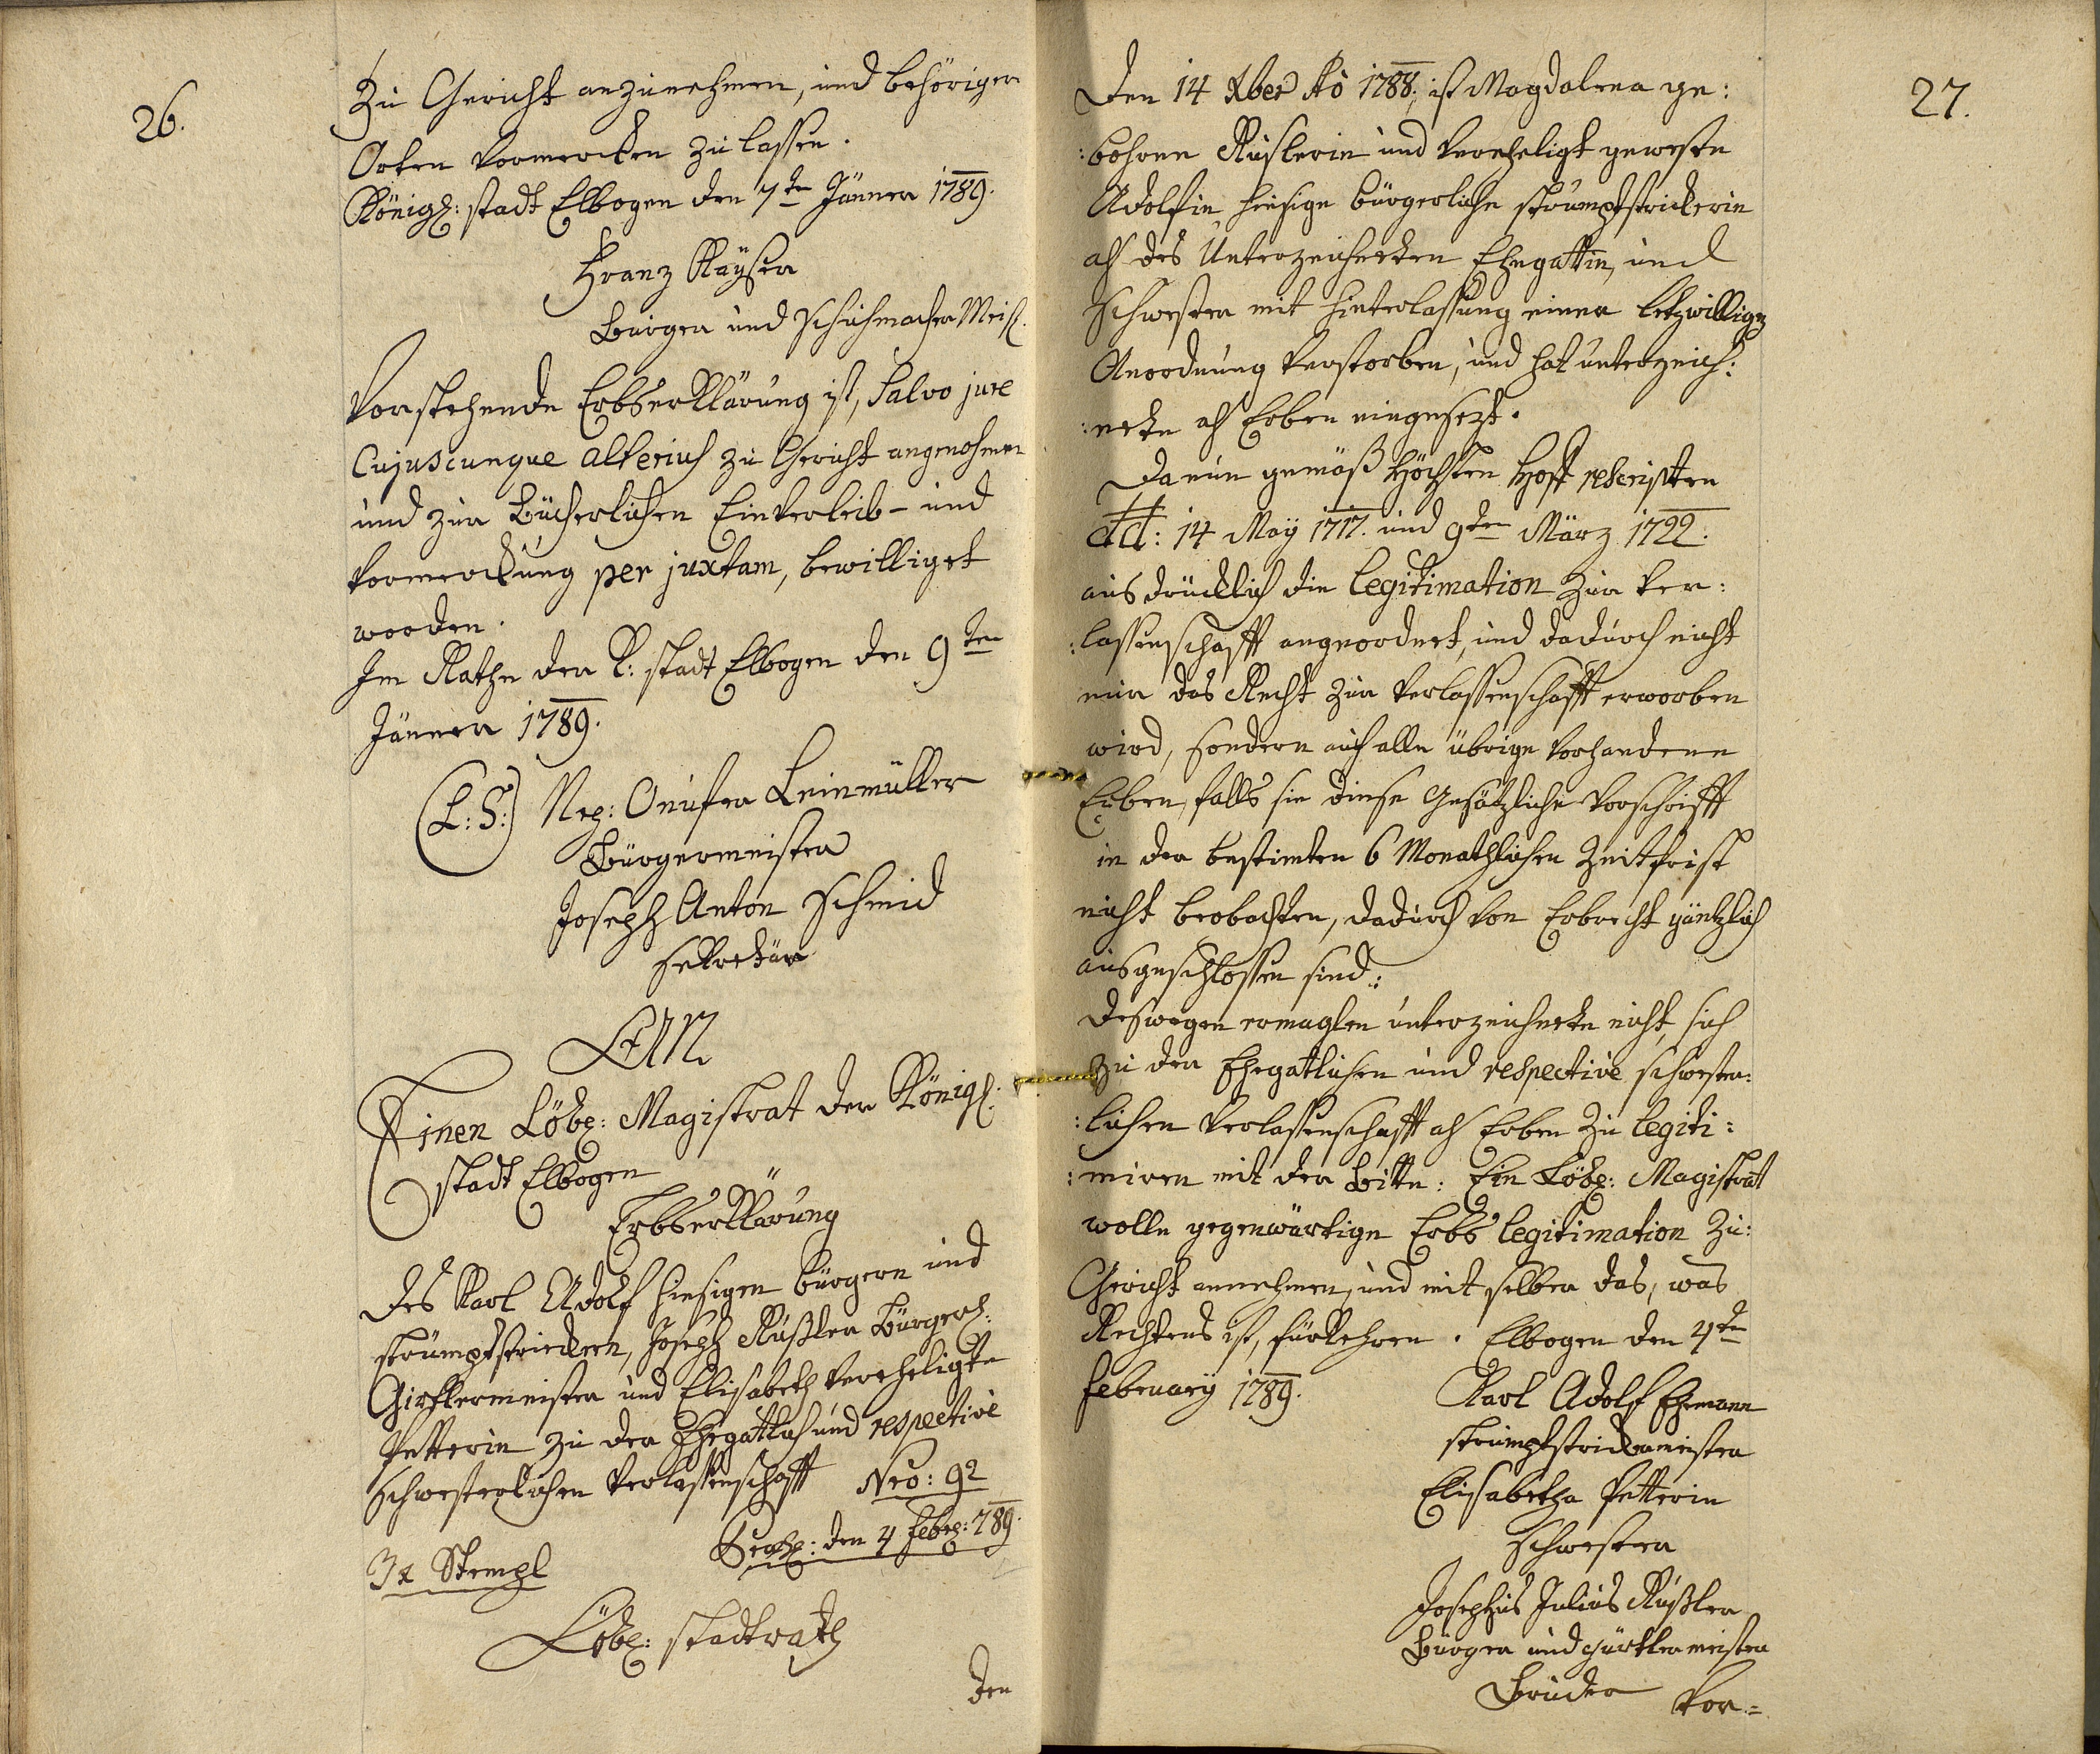 26.
Zu Gericht anzunehmen, und behöriger
Orten vormercken zu lassen.
Königl: stadt Elbogen den 7ten Jänner 1789.
Franz Kaÿser
Burger und Schuhmacher Meist.
Vorstehende Erbserklärung ist, Salvo jure
Cujuscunque alterius zu Gericht angenohmen
und zur Bücherlichen Einverleib- und
vormerckung per juxtam, bewilliget
worden.
Im Rathe der K: stadt Elbogen den 9ten
Jänner 1789.
(L: S:) Nep: Onufer Leinmüller
Bürgermeister
Joseph Anton Schmid
sekretär
AN
Einen Löbl: Magistrat der Königl:
stadt Elbogen
Erbserklärung
Des Karl Adolf hiesigen bürgern und
strümpfstrickern, Joseph Rüßler Bürgerl:
Girtlermeister und Elisabeth verheligte
Petterin zu der Ehegattlich und respective
Schwesterlichen Verlassenschafft Nro: 92
3x Stempl
Praes: den 4 Febr: 789.
Löbl: stadtrath
Den
27.
Den 14 Xber Ao 1788. ist Magdalena ge:
:bohrne Rüslerin und vereheligt geweste
Adolfin hiesige bürgerliche strümpfstrickerin
als des Unterzeichneten Ehegattin, und
Schwester mit hinterlassung einer letzwilligen
Anordnung verstorben, und hat unterzeich:
:nete als Erben eingesezt.
Da nun gemäß Höchsten Hoff rescripten
dd: 14 Maÿ 1717. und 9ten März 1722.
ausdrücklich die legitimation zur ver:
:lassenschafft angeordnet, und dadurch nicht
nur das Recht zur verlassenschafft erworben
wird, sondern auch alle übrige vorhandene
Erben, falls sie diese gesätzliche vorschrifft
in der bestimten 6 Monathlichen Zeitfrist
nicht beobachten, dadurch von Erbrecht gäntzlich
ausgeschlossen sind:
Deswegen ermaglen unterzeichnete nicht, sich
zu der Ehegatlichen und respective schwester:
:lichen verlassenschafft als Erben zu legiti:
:miren mit der Bitte: Ein Löbl: Magistrat
wolle gegenwärtige Erbs legitimation zu:
Gericht annehmen, und mit selber das, was
Rechtens ist, fürkehren. Elbogen den 4ten
Februarÿ 1789.
Karl Adolf Ehemann
strümpfstrickermeister
Elisabetha Petterin
Schwester
Josephus Julius Rüßler
Bürger und gürtlermeister
Bruder
Vor:=